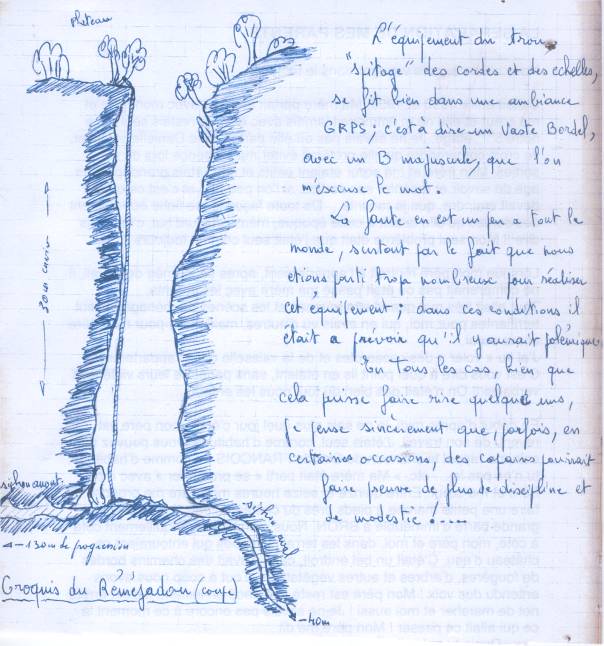 plateau
L'équipement du trou,
"spitage" des cordes et des echelles,
se fit bien dans une ambiance
GRPS; c'est à dire un Vaste Bordel,
avec un B majuscule, que l'on
m'excuse le mot.
La faute en est un peu a tout le
monde, surtout par le fait que nous
etions parti trop nombreux pour réaliser
cet equipement; dans ces conditions il
était a prevoir qu'il y aurait polémique
En tous les cas, bien que
cela puisse faire rire quelques uns,
je pense sincèrement que, parfois, en
certaines occasions, des copains pourrait
faire preuve de plus de discipline et
de modestie !....
30m environ
siphon amont
siphon aval
130m de progression
- 40m
Croquis du Rémésadou (coupe)